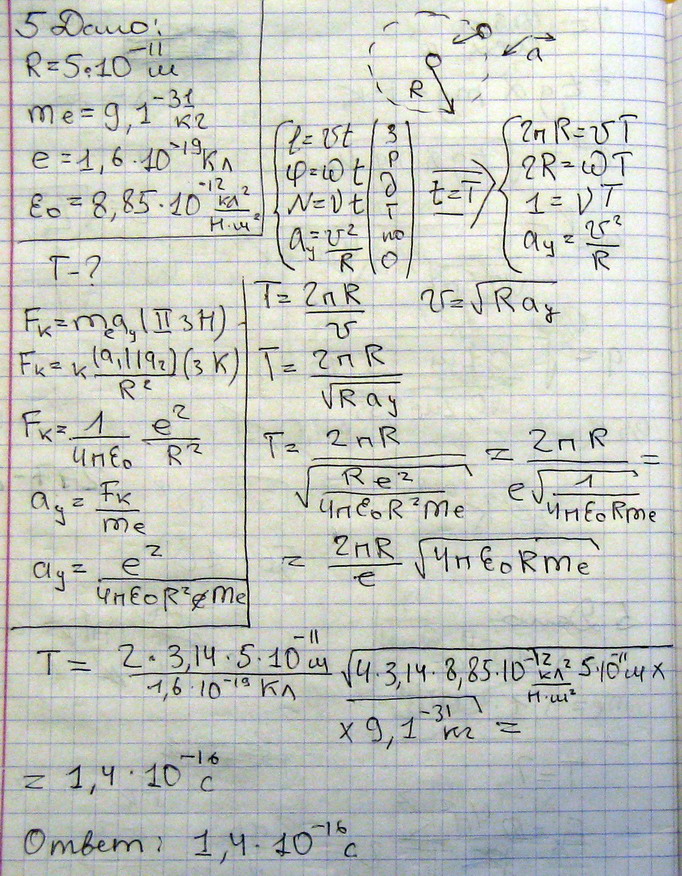 5 Дано:
R = 5·10⁻¹¹ м
me = 9,1⁻³¹ кг
e = 1,6·10⁻¹⁹ Кл
ε₀ = 8,85·10⁻¹² кл²/Н·м²
T - ?
R
a⃗
l = υt
φ = ωt
N = νt
aу = υ²/R
З Р Д Т по О
t = T
2πR = υT
2R = ωT
1 = νT
aу = υ²/R
Fк = meaу (II ЗН)
Fк = к (q₁||q₂)/R² (ЗК)
Fк = 1/4πε₀ e²/R²
aу = Fк/me
aу = e²/4πε₀R²me
T = 2πR/υ υ = √Raу
T = 2πR/√Raу
T = 2πR/√(Re²/4πε₀R²me) = 2πR/e√(1/4πε₀Rme) =
= 2πR/e √4πε₀Rme
T = 2·3,14·5·10⁻¹¹ м/1,6·10⁻¹⁹ Кл √4·3,14·8,85·10⁻¹² кл²/Н·м² 5·10⁻¹¹ м ×
× 9,1⁻³¹ кг =
= 1,4·10⁻¹⁶ с
Ответ: 1,4·10⁻¹⁶ с